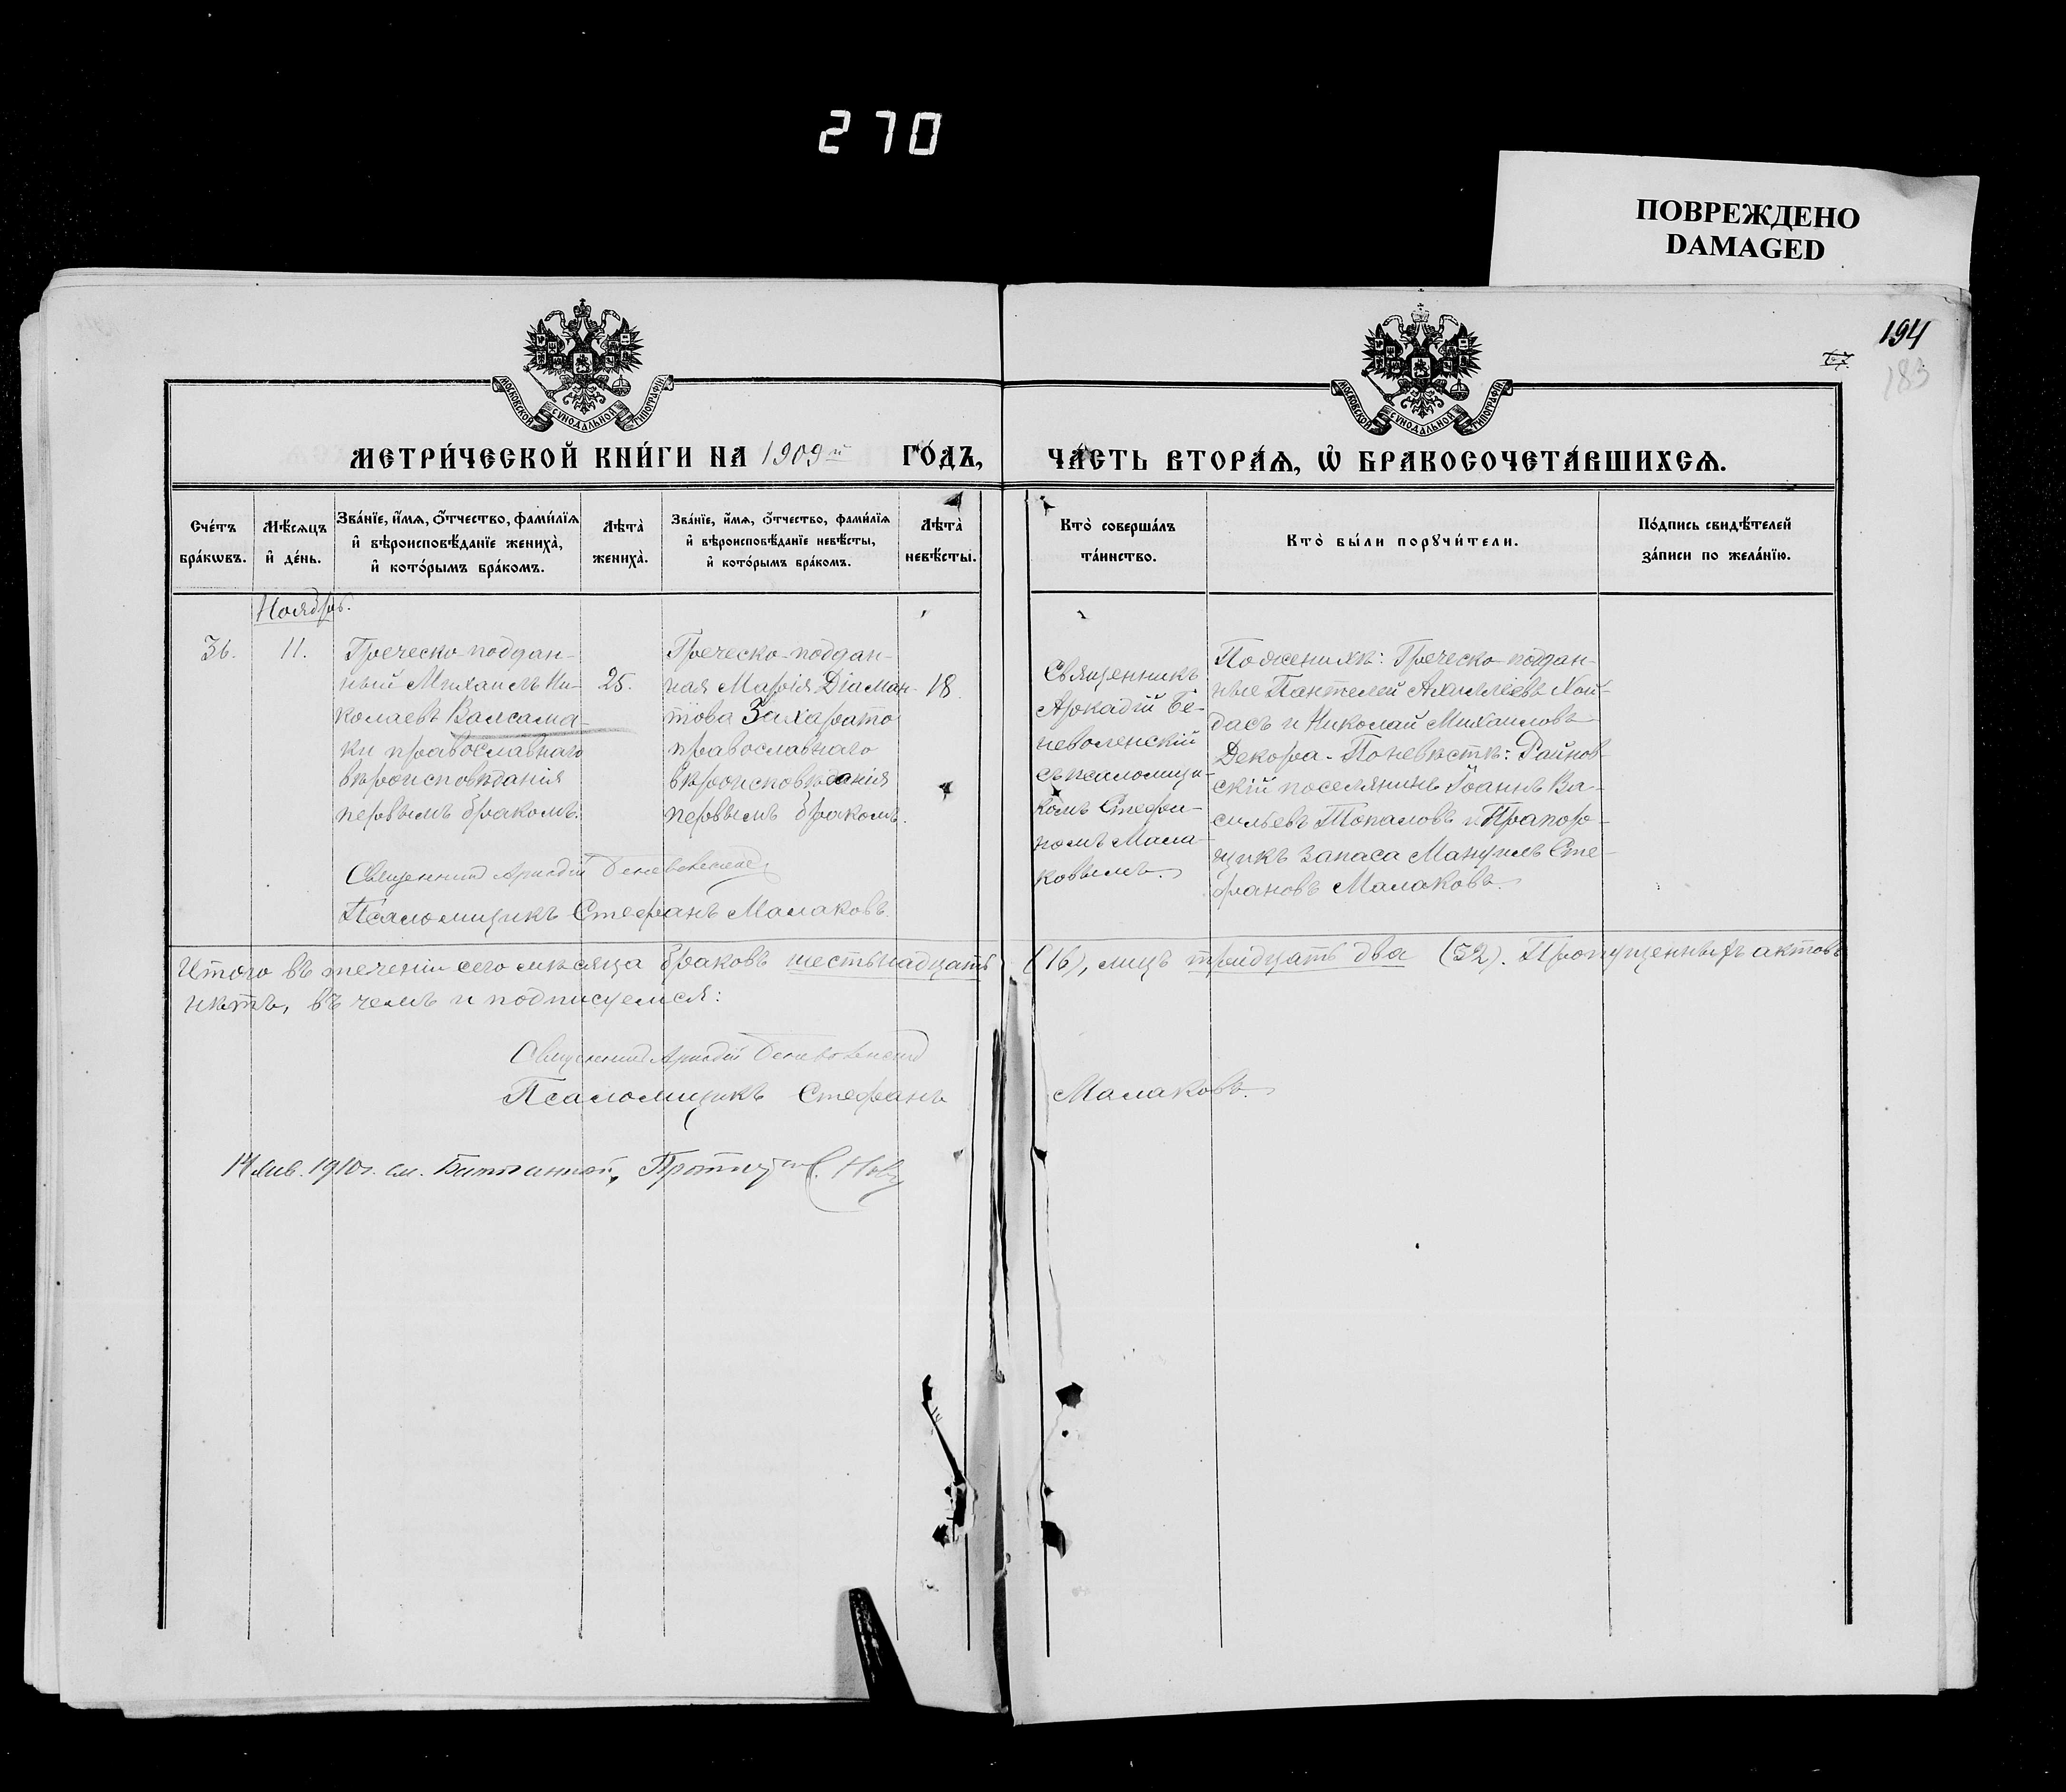 270
ПОВРЕЖДЕНО
DAMAGED
194
67.
183
МОСКОВСКОЙ СѴНОДАЛЬНОЙ ТИПОГРАФІИ
МОСКОВСКОЙ СѴНОДАЛЬНОЙ ТИПОГРАФІИ
МЕТРИ́ЧЕСКОЙ КНИ́ГИ НА 1909й ГО́ДЪ,
ЧА́СТЬ ВТОРА́Ѧ, Ѽ БРАКОСОЧЕТА́ВШИХСѦ.
Сче́тъ
бра́кѡвъ.
Мѣ́сѧцъ
и҆ де́нь.
Зва́нїе, и҆́мѧ, ѻ҆́тчество, фами́лїѧ
и҆ вѣроисповѣ́данїе жениха̀,
и҆ кото́рымъ бра́комъ.
Лѣта̀
жениха̀.
Зва́нїе, и҆́мѧ, ѻ҆́тчество, фами́лїѧ
и҆ вѣроисповѣ́данїе невѣ́сты,
и҆ кото́рымъ бра́комъ.
Лѣта̀
невѣ́сты.
Кто̀ соверша́лъ
та́инство.
Кто̀ бы́ли порꙋчи́тели.
По́дпись свидѣ́телей
за́писи по жела́нїю.
Ноябрь.
36.
11.
Греческо-поддан-
ный Михаилъ Ни-
колаевъ Валсама-
ки православнаго
вѣроисповѣданія
первымъ бракомъ.
25.
Греческо-поддан-
ная Марія Діаман-
това Захарато
православнаго
вѣроисповѣданія
первымъ бракомъ.
18.
Священникъ
Аркадій Бе-
неволенскій
съ псаломщи-
комъ Стефа-
номъ Мала-
ковымъ.
По женихѣ: Греческо-поддан-
ные Пантелей Ахиллеевъ Хой-
дасъ и Николай Михаиловъ
Декора. По невѣстѣ: Райнов-
скій поселянинъ Іоаннъ Ва-
сильевъ Топаловъ и Прапор-
щикъ запаса Мануилъ Сте-
фановъ Малаковъ.
Священникъ Аркадій Беневоленскій
Псаломщикъ Стефанъ Малаковъ.
Итого въ теченіи сего мѣсяца браковъ шестьнадцать (16), лицъ тридцать два (32). Пропущенныхъ актовъ
нѣтъ, въ чемъ и подписуемся:
Священникъ Аркадій Беневоленскій
Псаломщикъ Стефанъ Малаковъ.
14 янв. 1910 г. см.